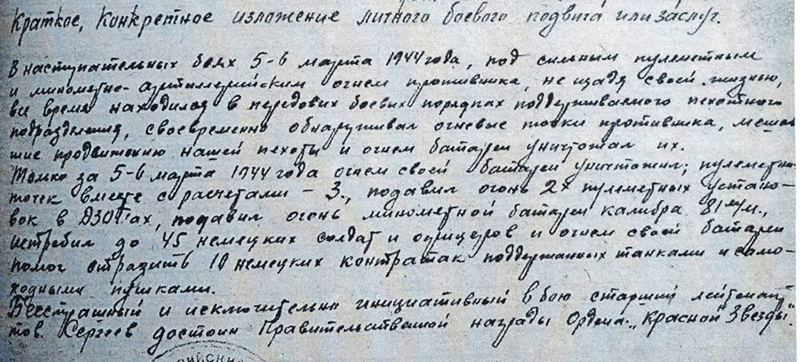 Краткое, конкретное изложение личного боевого подвига или заслуг.
В наступательных боях 5-6 марта 1944 года, под сильным пулеметным
и минометно-артиллерийским огнем противника, не щадя своей жизнью,
все время находился в передовых боевых порядках поддерживаемого пехотного
подразделения, своевременно обнаруживал огневые точки противника, мешаю-
щие продвижению нашей пехоты и огнем батареи уничтожал их.
Только за 5-6 марта 1944 года огнем своей батареи уничтожил; пулеметных
точек вместе с расчетами - 3, подавил огонь 2х пулеметных устано-
вок в ДЗОТах, подавил огонь минометной батареи калибра 81 м/м.,
истребил до 45 немецких солдат и офицеров и огнем своей батареи
помог отразить 10 немецких контратак поддержанных танками и само-
ходными пушками.
Бесстрашный и исключительно инициативный в бою старший лейтенант
тов. Сергеев достоин Правительственной награды Ордена "Красной Звезды".